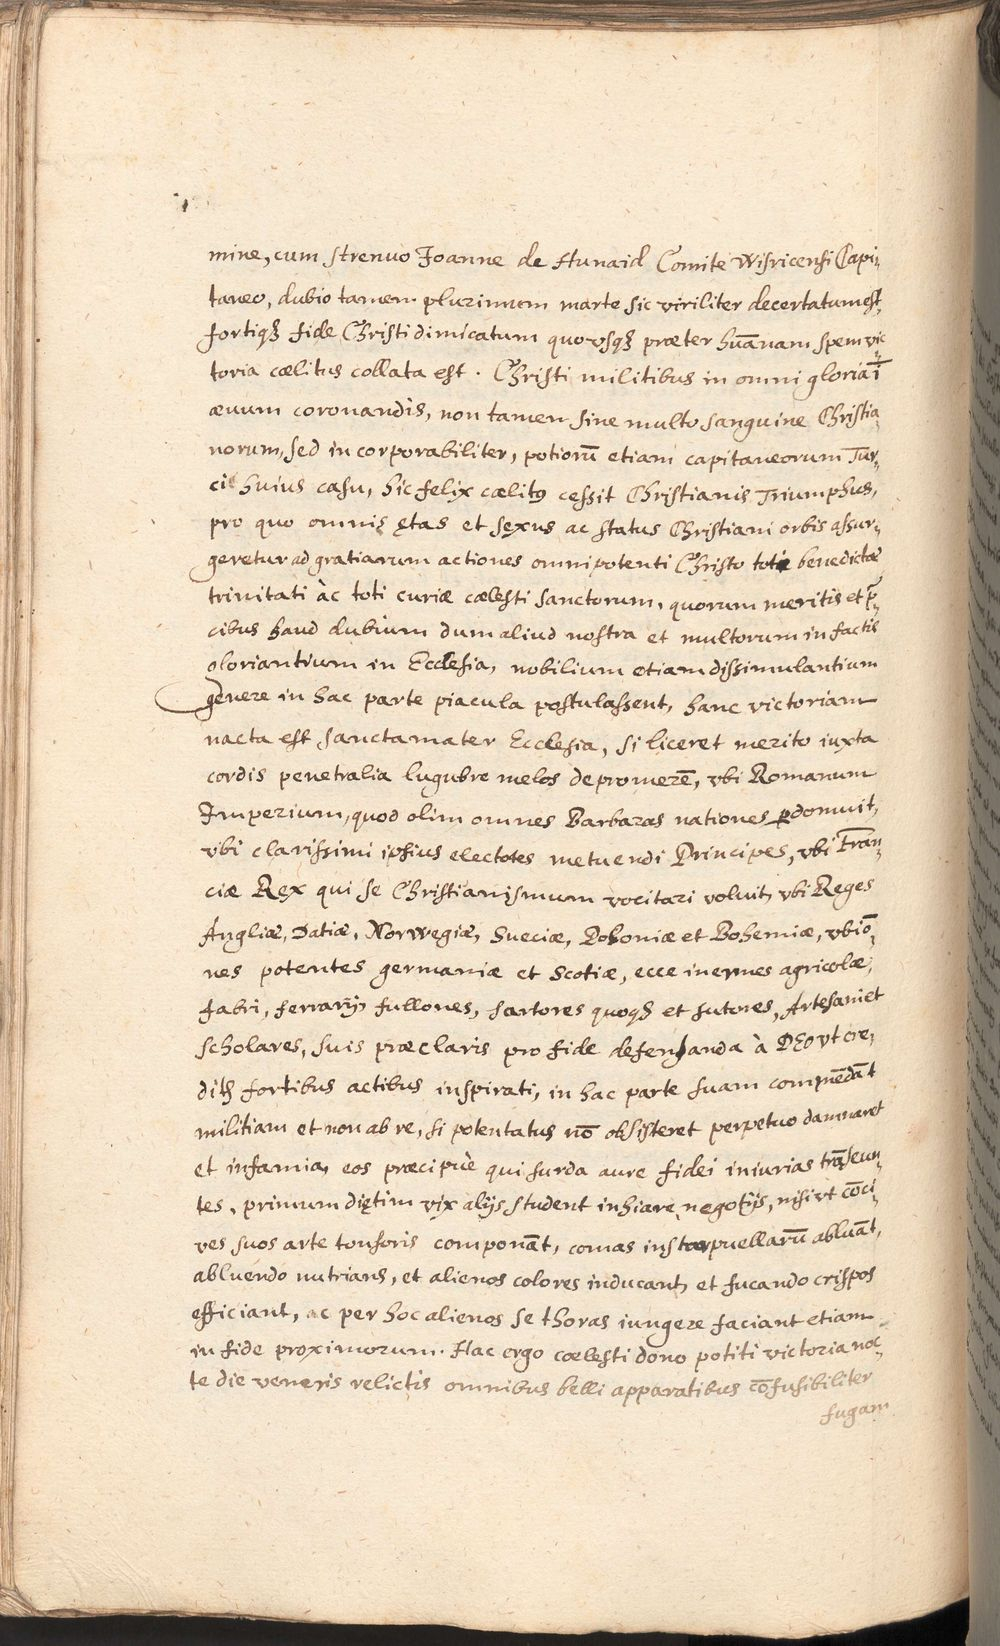 mine, cum strenuo Joanne de Hunaid Comite Wisricensi Capi,,
taneo, dubio tamen plurimum marte, sic viriliter decertatum est,
fortiqȝ fide Christi dimicatum quovsqȝ præter hūanam spem vic,,
toria cælitus collata est. Christi militibus in omni gloria ī
ævum coronandis, non tamen sine multo sanguine Christia,,
norum, sed incorporabiliter, potiorū etiam capitaneorum Tur,,
ci huius casu, hic felix cælitꝰ cessit Christianis Triumphus,
pro quo omnis ętas et sęxus ac status Christiani orbis assur,,
geretur ad gratiarum actiones omnipotenti Christo toti benedictæ
trinitati àc toti curiæ cælesti sanctorum, quorum meritis et p̄,,
cibus haud dubium dum aliud nostra et multorum in factis
gloriantium in Ecclesia, nobilium etiam dissimulantium
genere in hac parte piacula postulassent, hanc victoriam
nacta est sancta mater Ecclesia, si liceret merito iuxta
cordis penetralia lugubre melos depromerē, vbi Romanum
Imperium, quod olim omnes Barbaras nationes ꝑdomuit,
vbi clarissimi ipsius electotes metuendi Principes, vbi Fran,,
ciæ Rex qui se Christianissimum vocitari voluit, vbi Reges
Angliæ, Datiæ, Norwegiæ, Sueciæ, Poloniæ et Bohemiæ, vbi ō,,
nes potentes germaniæ et Scotiæ, ecce inermes agricolæ,
fabri, ferrarij, fullones, sartores quoqȝ et sutores, Artesani et
scholares, suis præclaris pro fide defendanda à DEO vt cre,,
ditȝ fortibus actibus inspirati, in hac parte suam commēdāt
militiam et non ab re, si potentatus nō obsisteret perpetuo damnaret
et infamia, eos præcipuè qui surda aure fidei iniurias trāseun,,
tes, primum diętim vix alijs student inhiare negotijs, nisi vt cōci,,
ves suos arte tonsoris componāt, comas instar puellarū abluāt,
abluendo nutrians, et alienos colores inducant, et fucando crispos
efficiant, ac per hoc alienos se thoras iungere faciant etiam
in fide proximorum. Hac ergo cœlesti dono potiti victoria noc,,
te die veneris relictis omnibus belli apparatibus cōfusibiliter
fugam